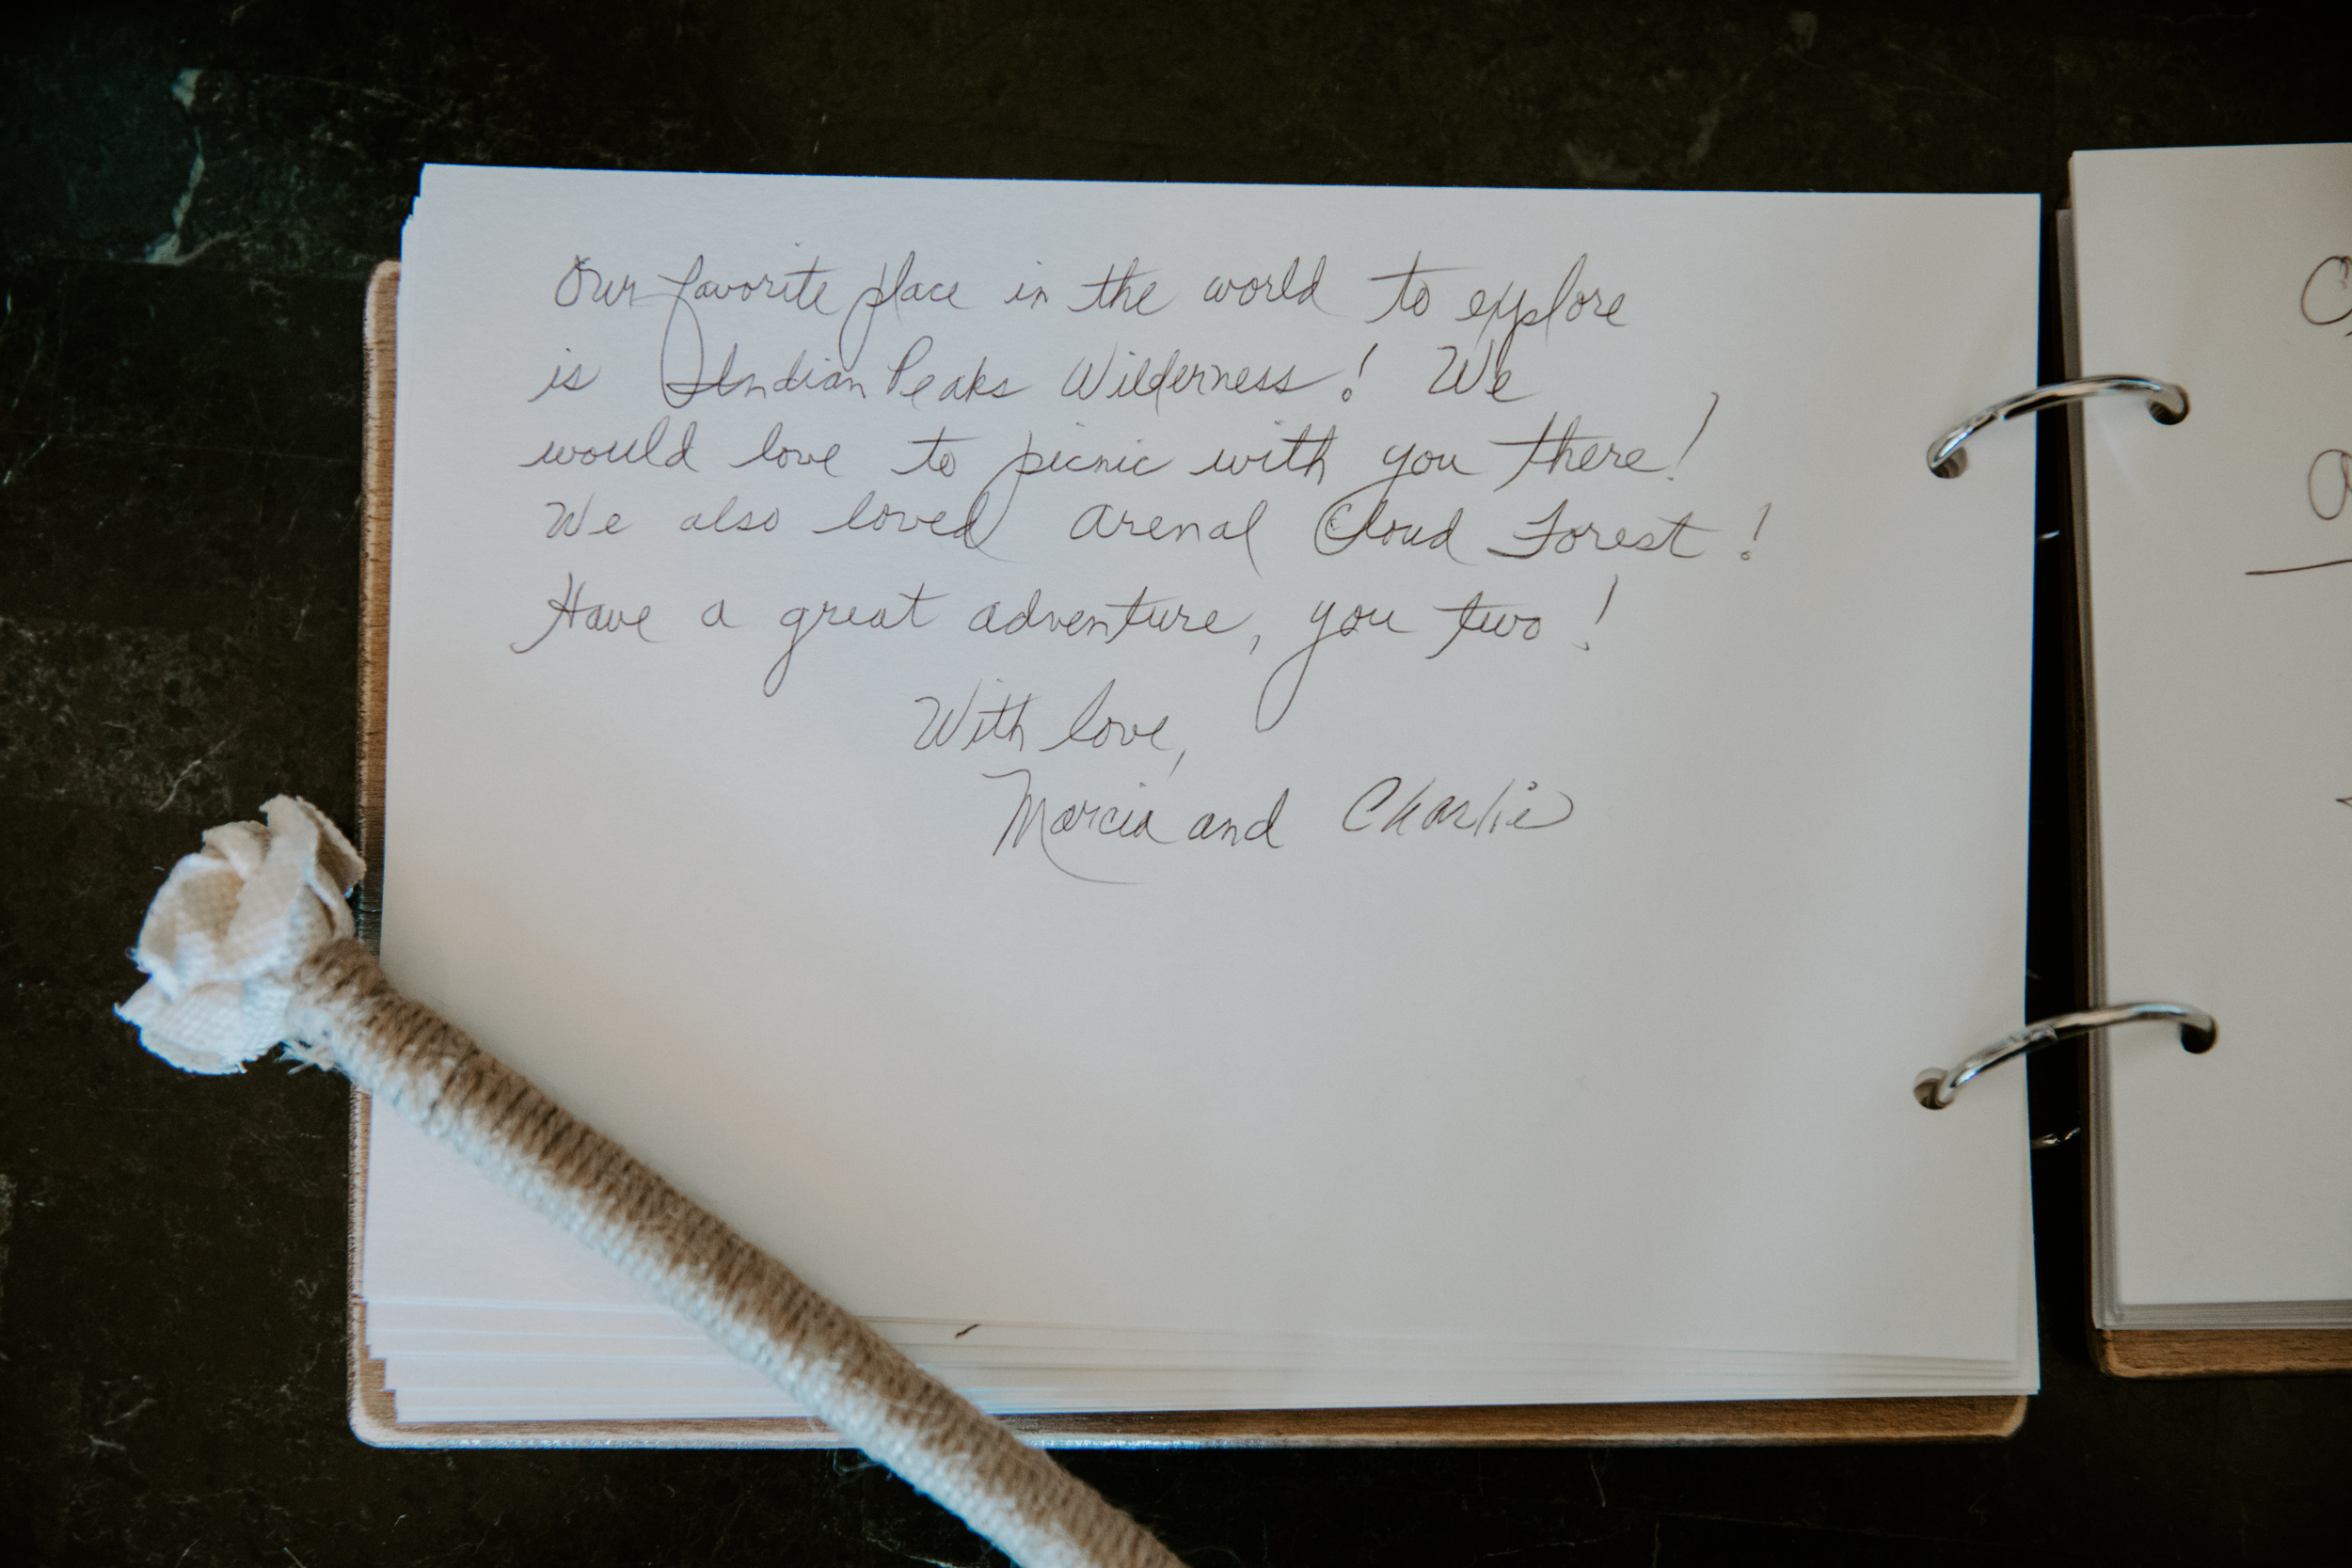 Our favorite place in the world to explore
is Indian Peaks Wilderness! We
would love to picnic with you there!
We also loved Arenal Cloud Forest!
Have a great adventure, you two!
With love,
Marcia and Charlie